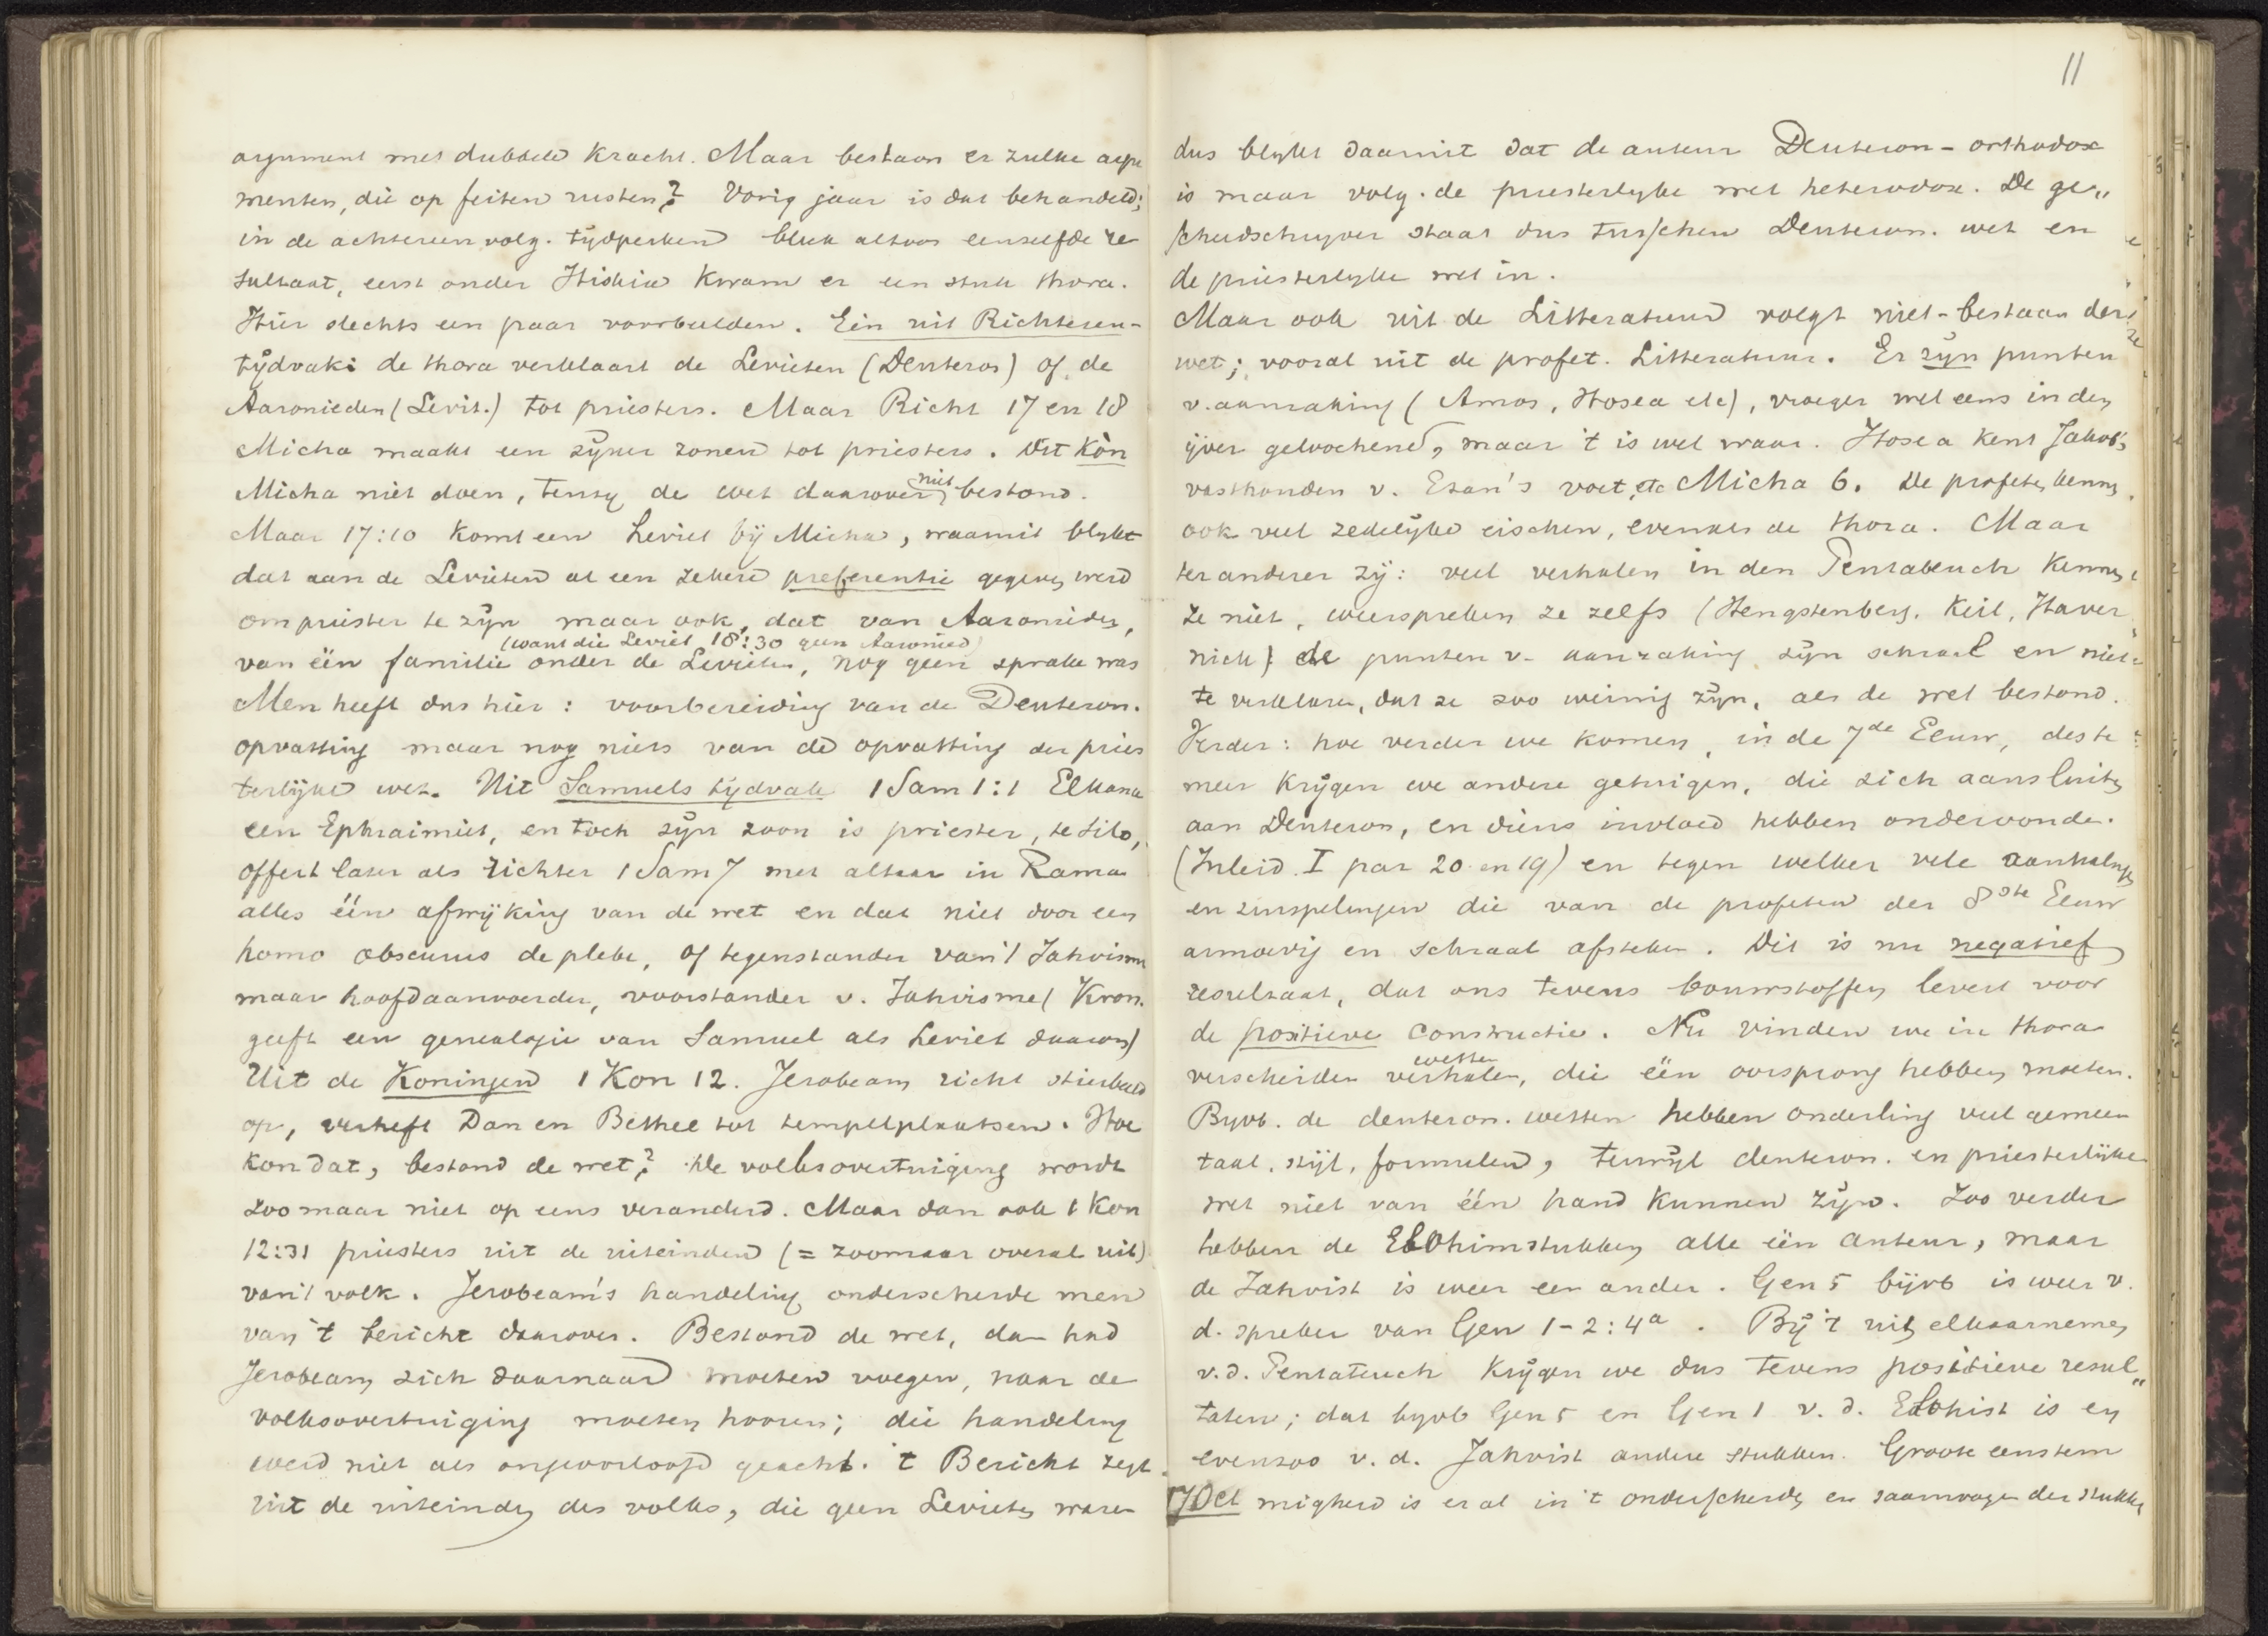 argument met dubbele kracht. Maar bestaan er zulke argu
menten, die op feiten rusten? Vorig jaar is dat behandeld;
in de achtereenvolg. tijdperken bleek altoos eenzelfde re
sultaat, eerst onder Hiskia kwam er een stuk thora.
Hier slechts een paar voorbeelden. Eén uit Richteren-
tijdvak: de thora verklaart de Levieten (Deuteron) of de
Aaronieden (Levit.) tot priesters. Maar Richt 17 en 18
Micha maakt een zijner zonen tot priesters. Dit kòn
Micha niet doen, tenzij de wet daarover niet bestond.
Maar 17:10 komt een Leviet bij Micha, waaruit blykt
dat aan de Levieten al een zekere preferentie gegeven werd
om priester te zijn maar ook, dat van Aaronieden,
(want die Leviet 18:30 geen Aaronied)
van één familie onder de Levieten, nog geen sprake was
Men heeft dus hier: voorbereiding van de Deuteron.
opvatting maar nog niets van de opvatting der pries
terlijke wet. Uit Samuels tijdvak 1 Sam 1:1 Elkana
een Ephraimiet, en toch zijn zoon is priester, te Silo,
offert later als richter 1 Sam 7 met altaar in Rama
alles één afwijking van de wet en dat niet door een
homo obscurus de plebe, of tegenstander van 't Jahvisme
maar hoofdaanvoerder, voorstander v. Jahvisme (Kron.
geeft een genealogie van Samuel als Leviet daarom)
Uit de Koningen 1 Kon 12. Jerobeam richt stierbeeld
op, verheft Dan en Bethel tot tempelplaatsen. Hoe
kon dat, bestond de wet? De volksovertuiging wordt
zoo maar niet op eens veranderd. Maar dan ook 1 Kon
12:31 priesters uit de uiteinden (= zoomaar overal uit)
van 't volk. Jerobeam's handeling onderscheide men
van 't bericht daarover. Bestond de wet, dan had
Jerobeam zich daarnaar moeten voegen, naar de
volksovertuiging moeten hooren; die handeling
werd niet als ongeoorloofd geacht. 't Bericht zegt
uit de uiteinden des volks, die geen Levieten waren
11
dus blykt daaruit dat de auteur Deuteron-orthodox
is maar volg. de priesterlyke wet heterodox. De ge„
schiedschryver staat dus tusschen Deuteron. wet en
de priesterlyke wet in.
Maar ook uit de Litteratuur volgt niet-bestaan der
wet; vooral uit de profet. Litteratuur. Er zijn punten
v. aanraking (Amos, Hosea etc), vroeger wel eens in den
ijver geloochend, maar 't is wel waar. Hosea kent Jakob's
vasthouden v. Esau's voet, etc Micha 6. De profeten kennen
ook veel zedelijke eischen, evenals de thora. Maar
ter anderer zij: veel verhalen in den Pentateuch kennen
ze niet, weerspreken ze zelfs (Hengstenberg. Keil, Haver
nick) de punten v. aanraking zijn schraal en niet
te verklaren, dat ze zoo weinig zijn, als de wet bestond.
Verder: hoe verder we komen, in de 7de Eeuw, des te
meer krijgen we andere getuigen, die zich aansluiten
aan Deuteron, en diens invloed hebben ondervonden.
(Inleid. I par 20 en 19) en tegen welker vele aanhalingen
en zinspelingen die van de profeten der 8ste Eeuw
armoedig en schraal afsteken. Dit is nu negatief
resultaat, dat ons tevens bouwstoffen levert voor
de positieve constructie. Nu vinden we in thora
wetten
verscheiden verhalen, die één oorsprong hebben moeten.
Byvb. de deuteron. wetten hebben onderling veel gemeen
taal, stijl, formulen, terwijl deuteron. en priesterlijke
wet niet van één hand kunnen zijn. Zoo verder
hebben de Elohimstukken alle één auteur, maar
de Jahvist is weer een ander. Gen 5 bijvb is weer v.
d. spreker van Gen 1-2:4a. Bij 't uit elkaarnemen
v.d. Pentateuch krijgen we dus tevens positieve resul„
taten; dat byvb Gen 5 en Gen 1 v. d. Elohist is en
evenzoo v. d. Jahvist andere stukken. Groote eenstem
7 Oct migheid is er al in 't onderscheiden en saamvoegen der stukken